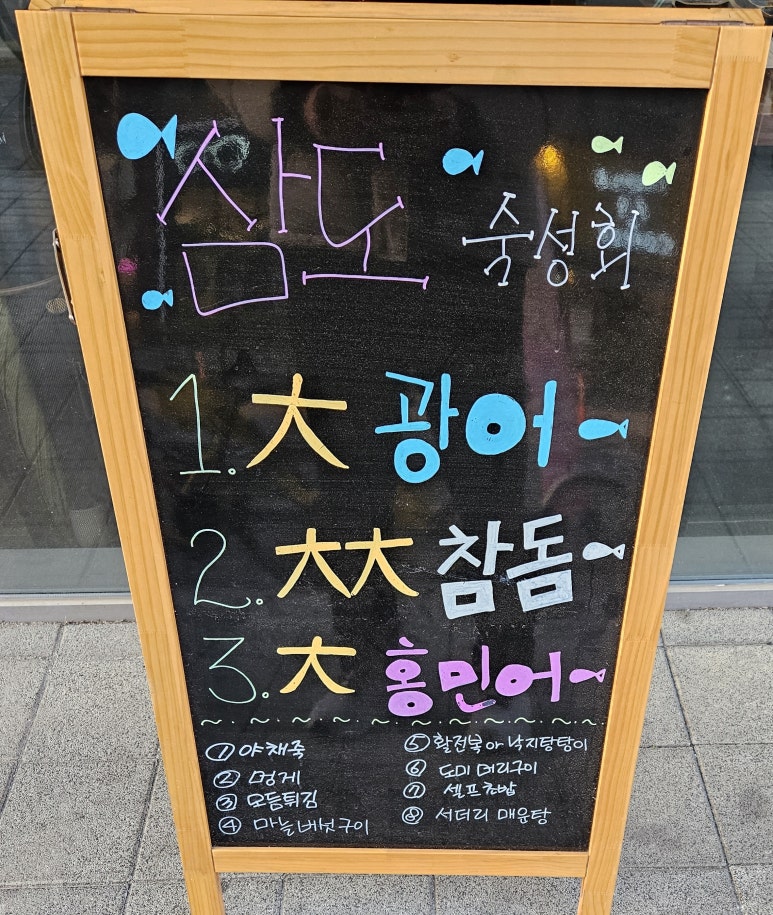 삼도 숙성회
1. 大 광어
2. 大大 참돔
3. 大 홍민어
① 야채죽
② 멍게
③ 모듬튀김
④ 마늘버섯구이
⑤ 활전복 and 낙지탕탕이
⑥ 도미 머리구이
⑦ 셀프초밥
⑧ 서더리 매운탕